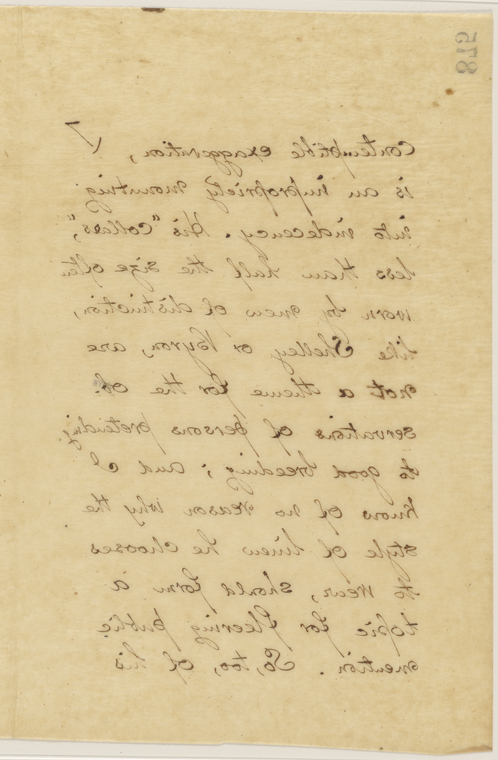 875
7
contemptible exaggeration,
is an impropriety mounting
into indecency. His "collars",
less than half the size often
worn by men of distinction,
like Shelley or Byron, are
not a theme for the ob-
servations of persons pretending
to good breeding; and I
know of no reason why the
style of linen he chooses
to wear, should form a
topic for fleering public
mention. So, too, of his